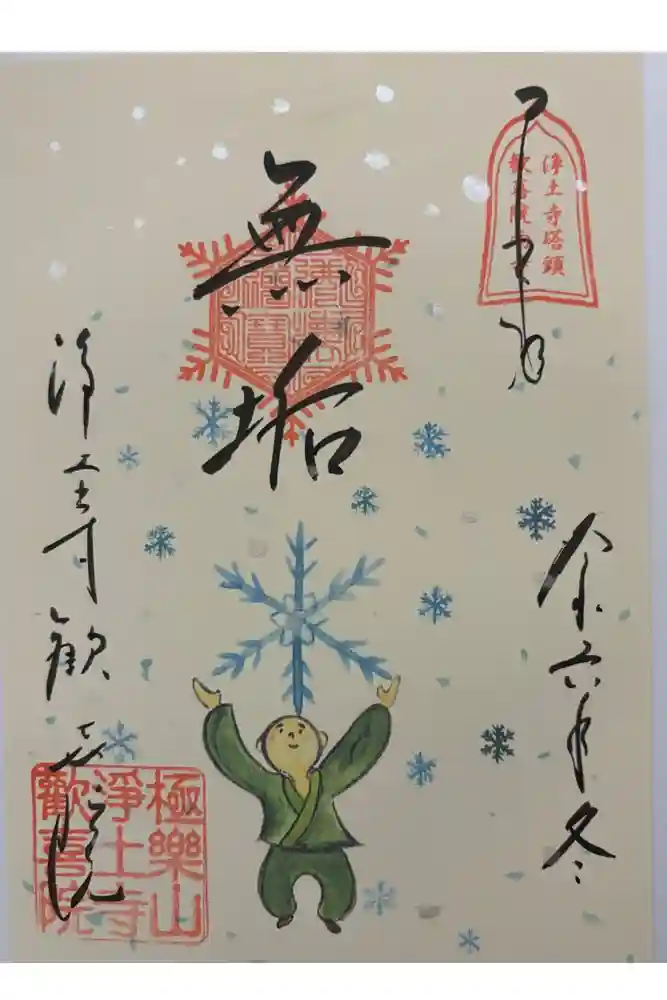 浄土寺塔頭
歓喜院
令和六年冬
無垢
浄土寺歓喜院
極樂山
淨土寺
歡喜院